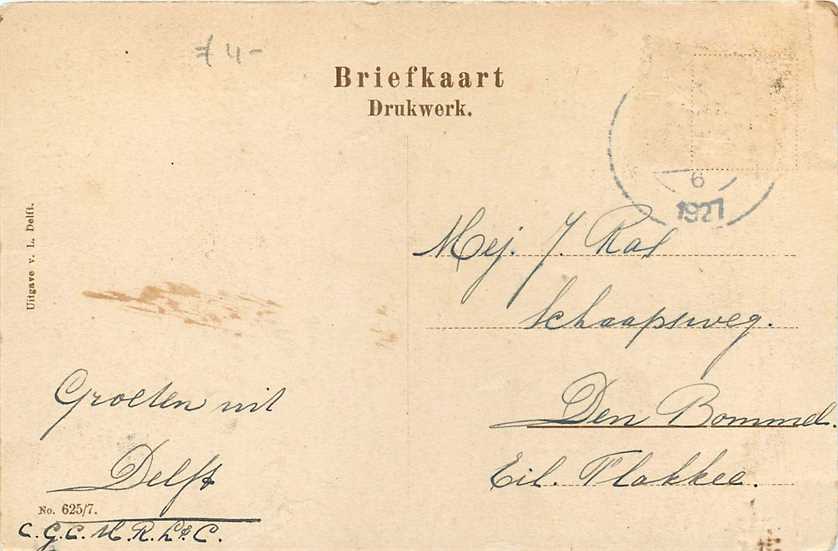 ≠ 4-
Briefkaart
Drukwerk.
6
1927
Uitgave v. L. Delft.
Mej. J. Kal
Schaapsweg.
Den Bommel.
Eil. Flakkee.
Groeten uit
Delft
No. 625/7.
C.G.C.M.R.L&C.